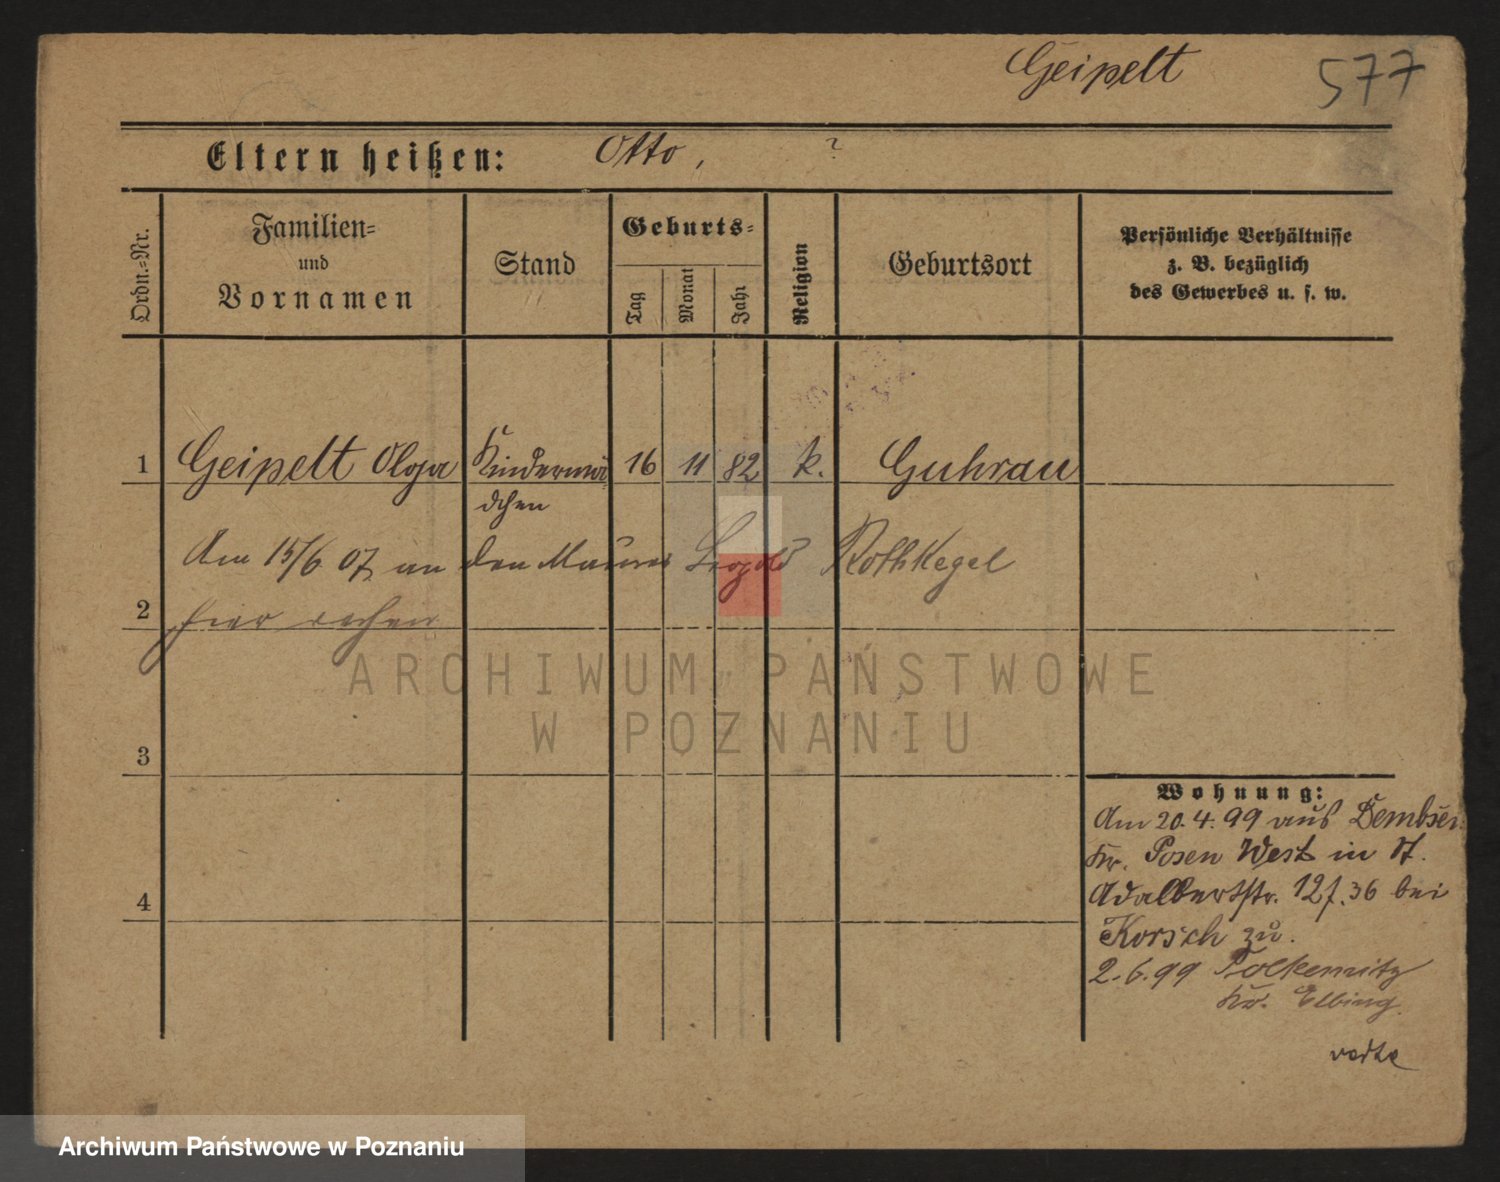 Geipelt 577
Eltern heißen: Otto, ?
Ordn.-Nr.
Familien-
und
Vornamen
Stand
Geburts-
Tag
Monat
Jahr
Religion
Geburtsort
Persönliche Verhältnisse
z. B. bezüglich
des Gewerbes u. s. w.
1 Geipelt Olga Kindermä 16 11 82 k. Guhrau
dchen
Am 15/6 07 an den Maurer Leopold Rothkegel
2 hier
ARCHIWUM PAŃSTWOWE
W POZNANIU
3
4
Wohnung:
Am 20.4.99 aus Dembsen
Kr. Posen West in St.
Adalbertstr. 127.36 bei
Korsch zu.
2.6.99 Tolkemitz
Kr. Elbing
Archiwum Państwowe w Poznaniu